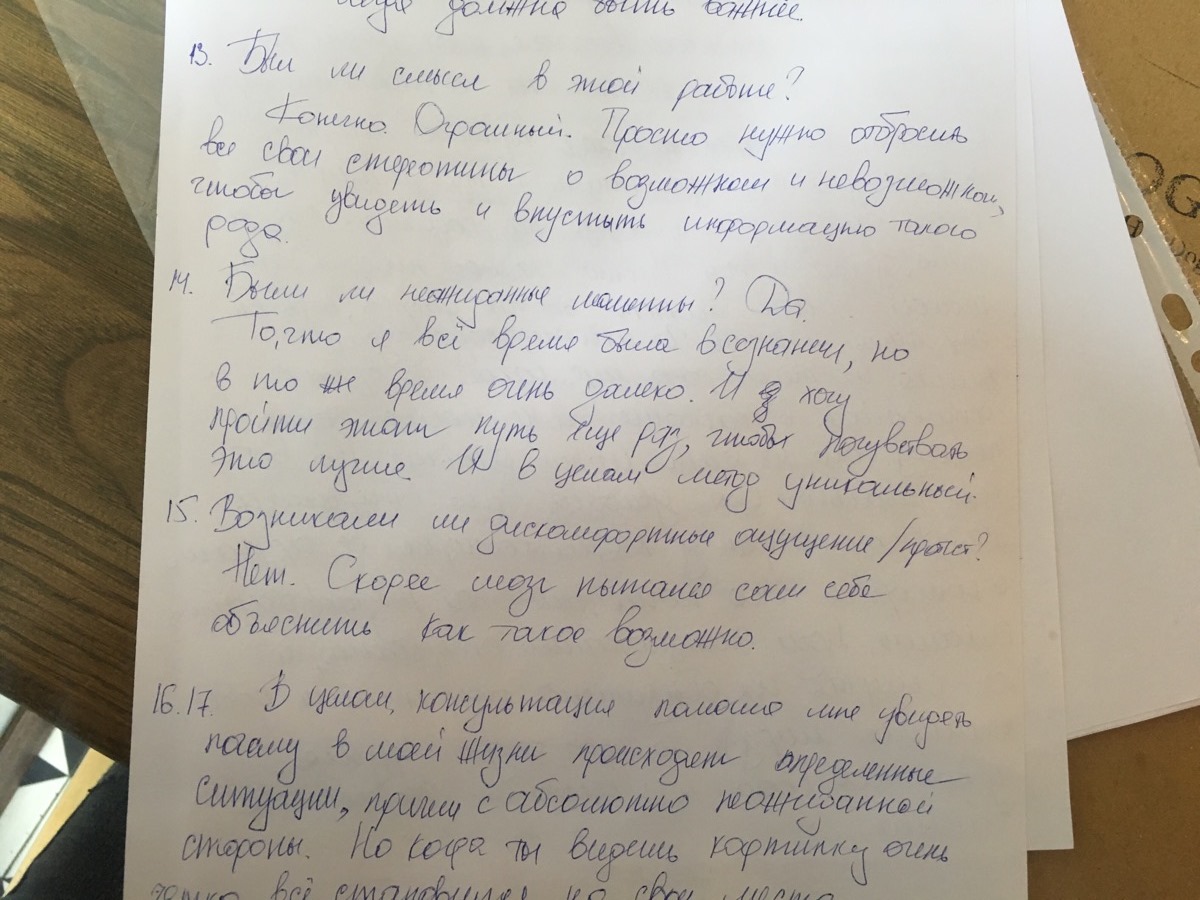 должна быть важнее.
13. Был ли смысл в этой работе?
Конечно. Огромный. Просто нужно отбросить
все свои стереотипы о возможном и невозможном,
чтобы увидеть и впустить информацию такого
рода.
14. Были ли неожиданные моменты? Да.
То, что я всё время была в сознании, но
в то же время очень далеко. И я хочу
пройти этот путь еще раз, чтобы почувствовать
это лучше. И в целом метод уникальный.
15. Возникали ли дискомфортные ощущение/протест?
Нет. Скорее мозг пытался сам себе
объяснить как такое возможно.
16.17. В целом, консультация помогла мне увидеть
почему в моей жизни происходят определенные
ситуации, причем с абсолютно неожиданной
стороны. Но когда ты видишь картинку очень
всё становится на свои места